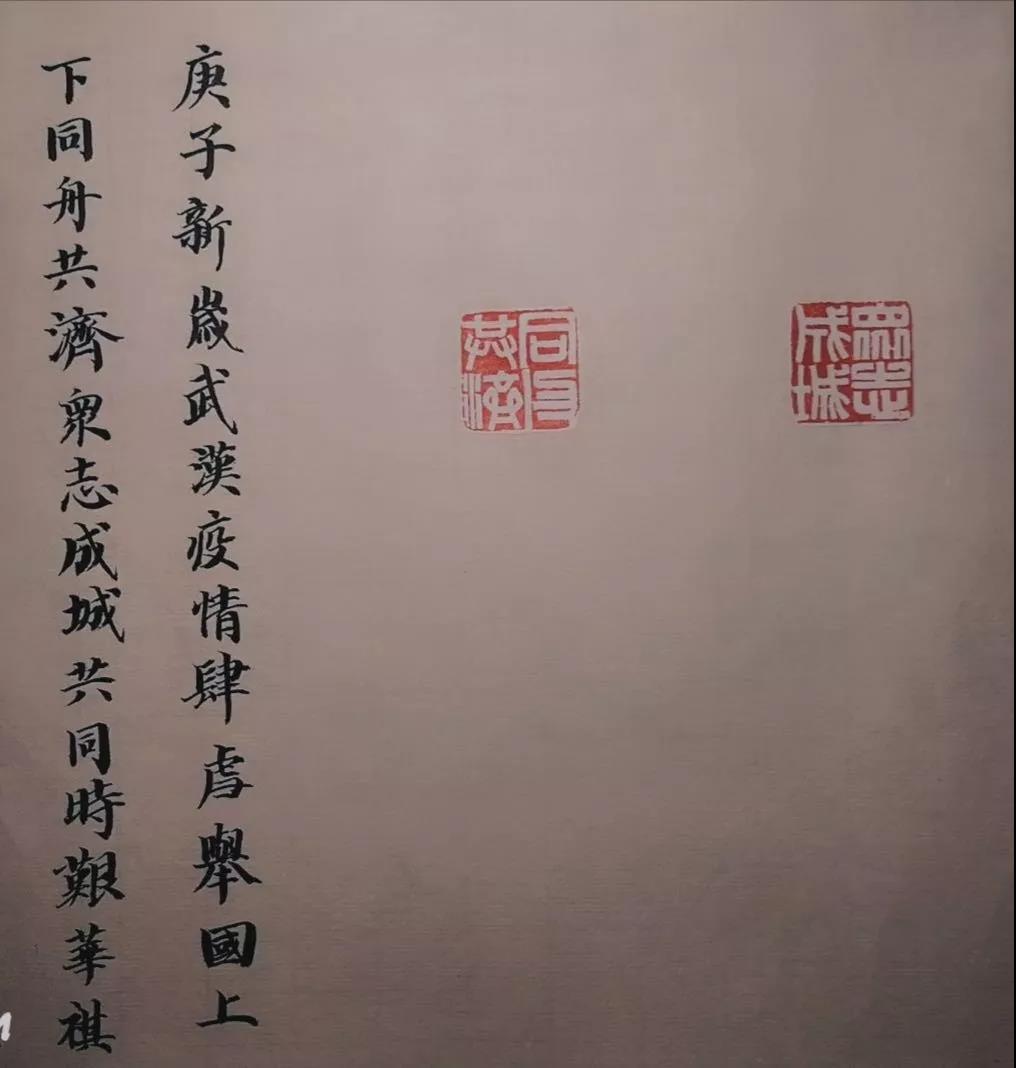 眾志成城
同舟共濟
庚子新歲武漢疫情肆虐舉國上
下同舟共濟衆志成城共同時艱華祺